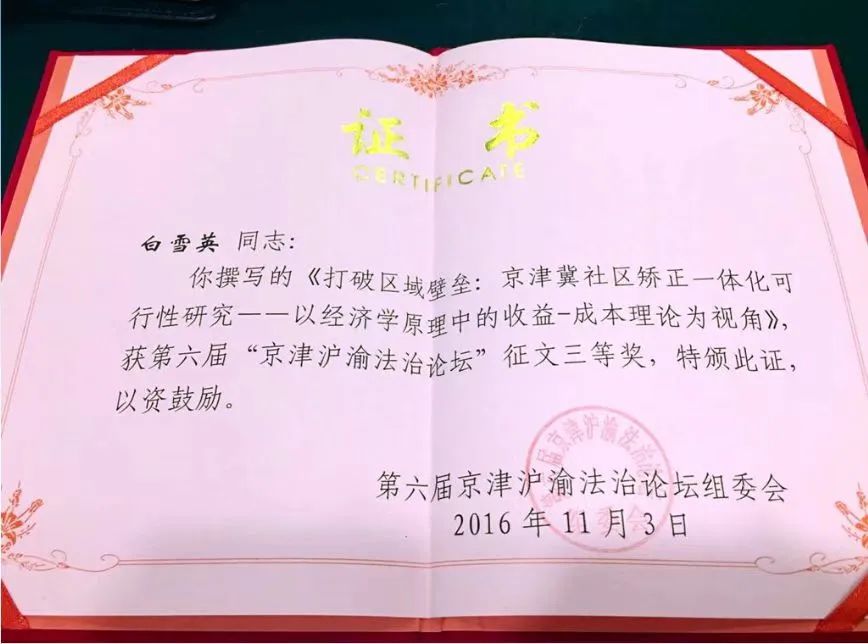 证书
CERTIFICATE
白雪英 同志：
你撰写的《打破区域壁垒：京津冀社区矫正一体化可
行性研究——以经济学原理中的收益-成本理论为视角》，
获第六届“京津沪渝法治论坛”征文三等奖，特颁此证，
以资鼓励。
第六届京津沪渝法治论坛组委会
2016年11月3日